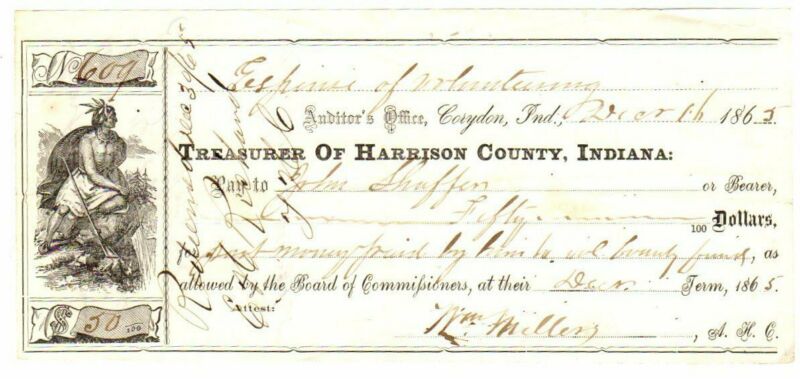 No 609
Expense of Volunteering
Auditor's Office, Corydon, Ind., Decr 16 1865
TREASURER OF HARRISON COUNTY, INDIANA:
Pay to John Shaffer or Bearer,
Fifty 100 Dollars,
money paid by him to vol bounty fund, as
allowed by the Board of Commissioners, at their Decr Term, 1865.
$ 50 100
Attest: Wm Miller, A. H. C.
Redeemed Dec 30/65